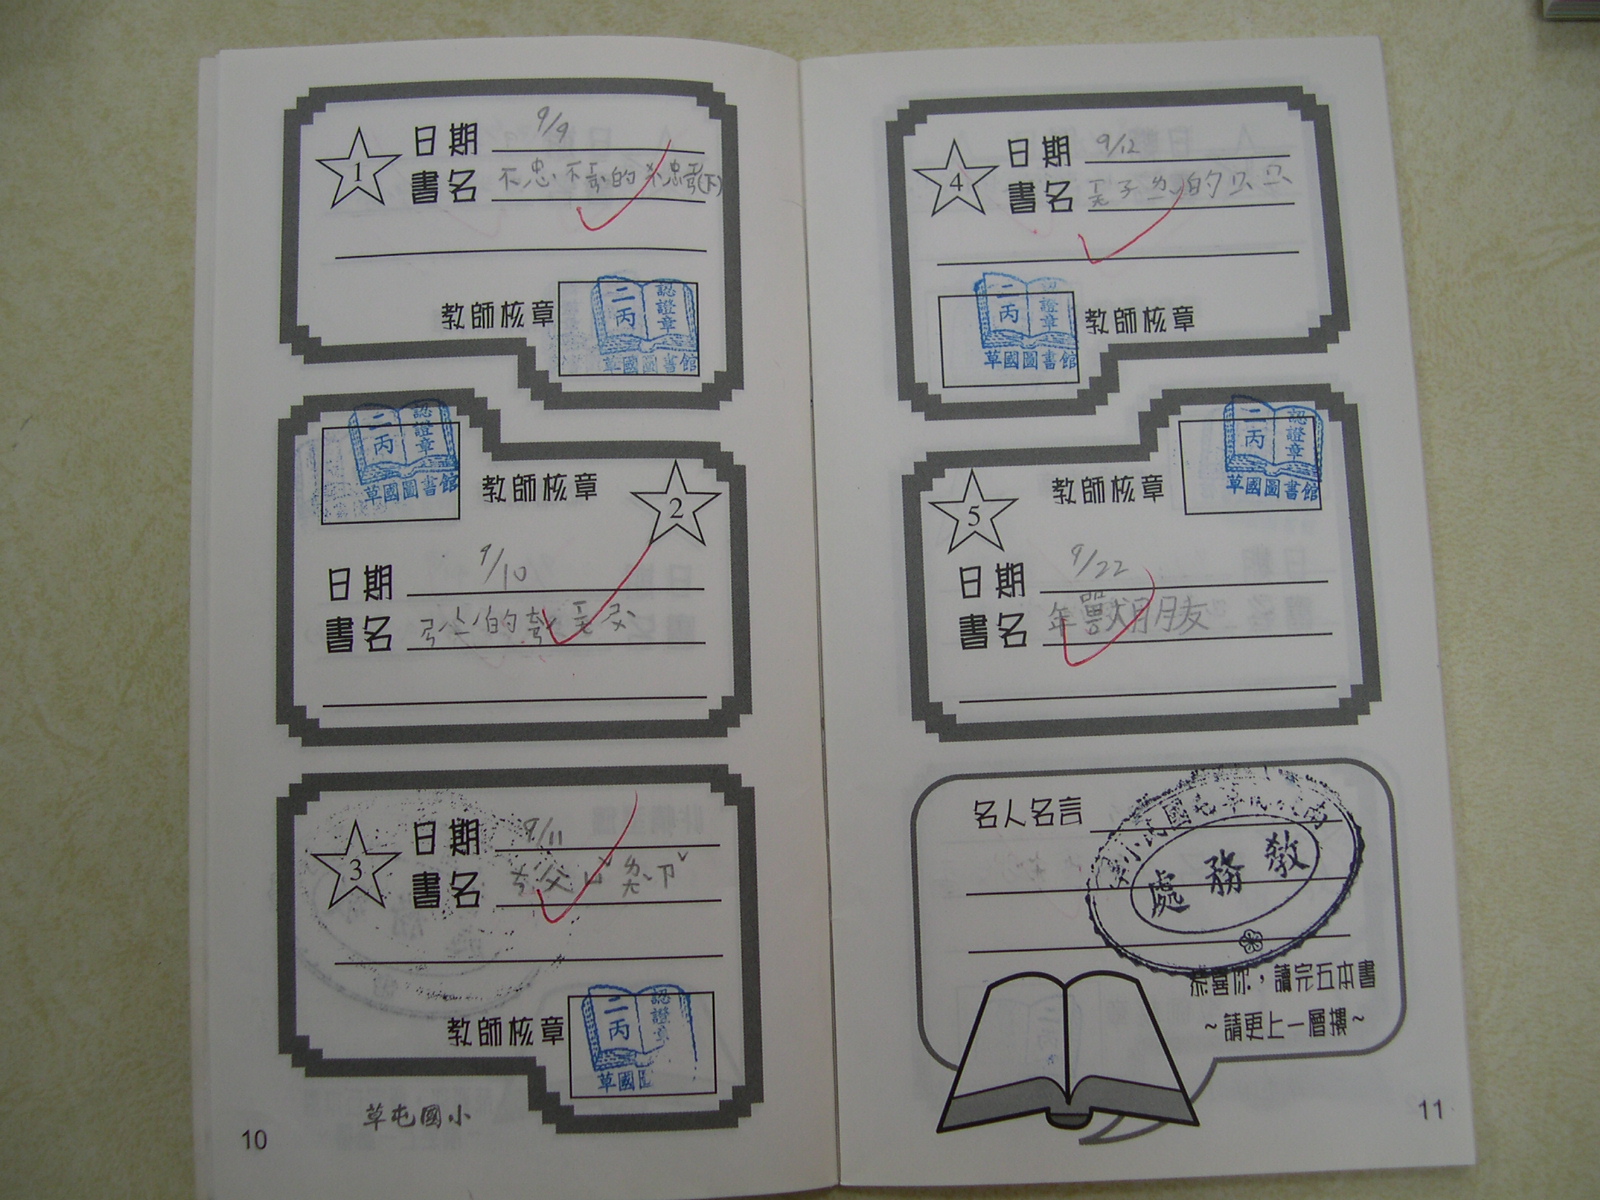 1
日期 9/9
書名 不忠不
的
(下)
教師核章
二丙
認證章
草國圖書館
二丙
認證章
草國圖書館
教師核章
2
日期 9/10
書名
的
3
日期 9/11
書名
教師核章
二丙
認證章
草國圖
草屯國小
10
4
日期 9/12
書名
子
的
教師核章
二丙
認證章
草國圖書館
5
教師核章
二丙
認證章
草國圖書館
日期 9/22
書名 年獸朋友
名人名言
教務處
恭喜你，讀完五本書
~請更上一層樓~
11